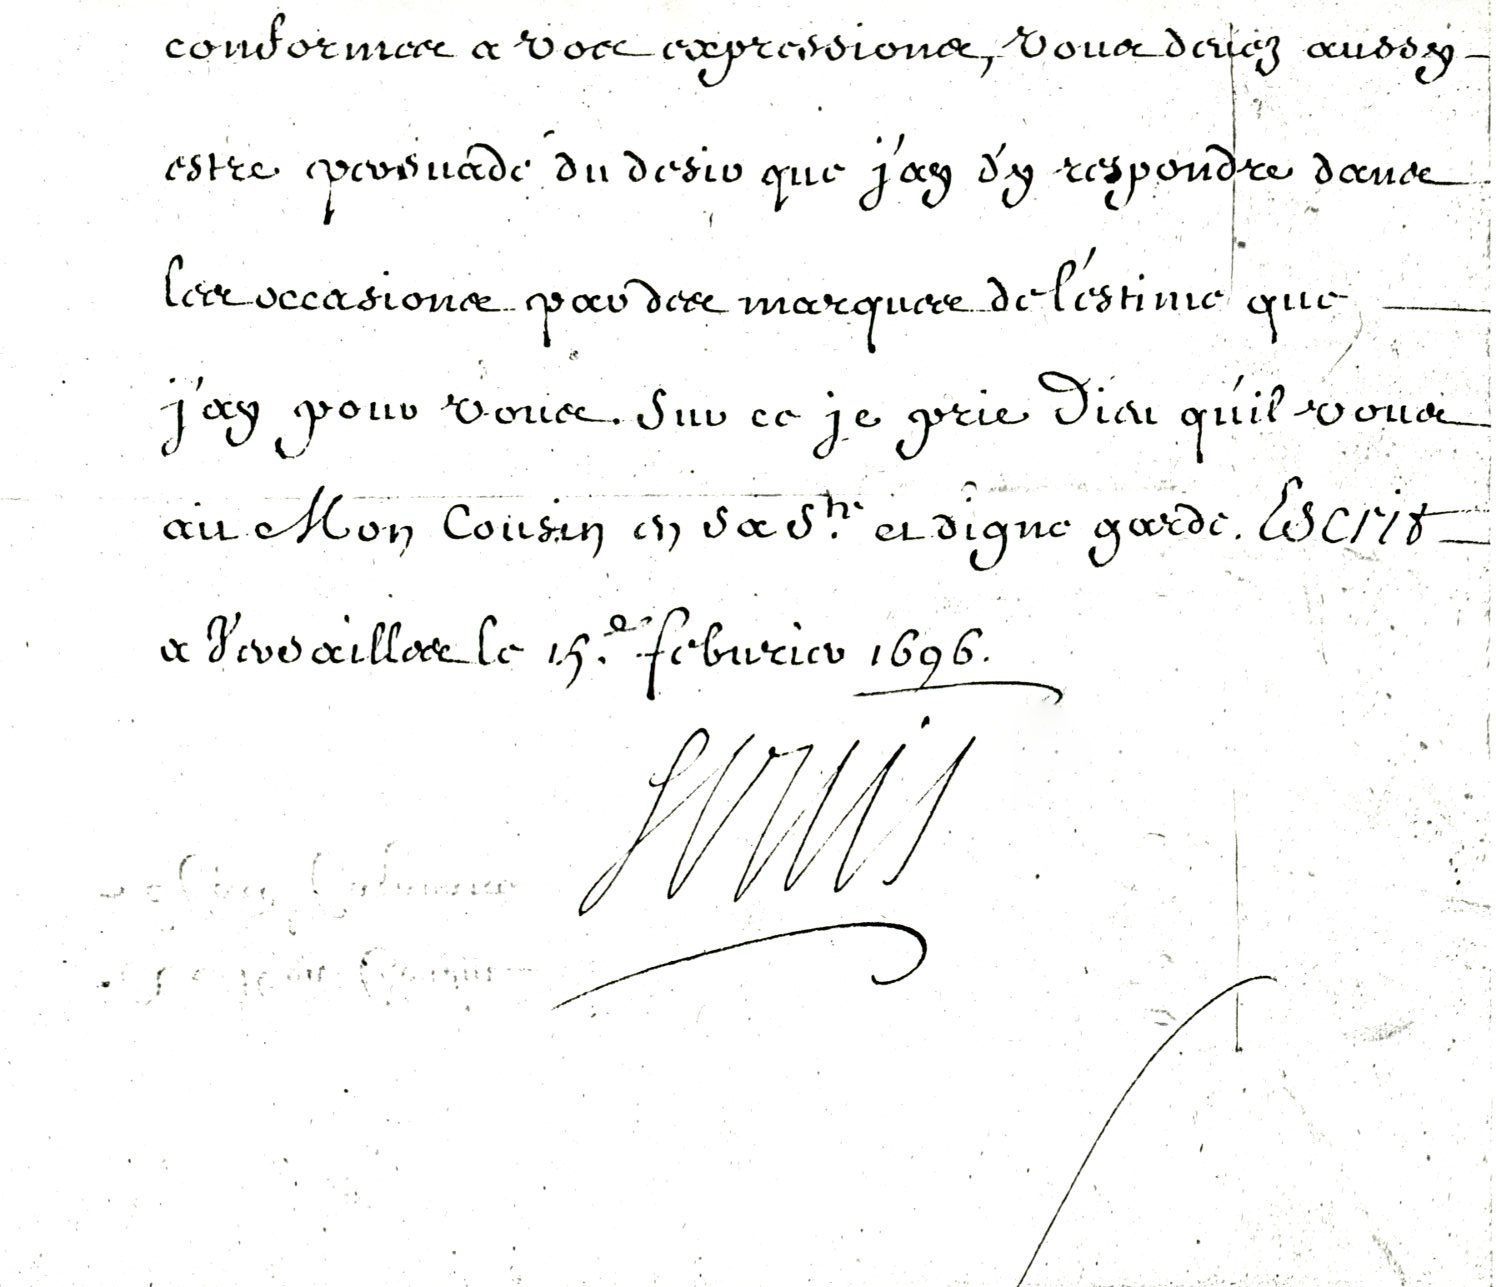 conformes a vos expressions, vous deuez aussy
estre persuadé du desir que j'ay d'y respondre dans
les occasions par des marques de l'estime que
j'ay pour vous. Sur ce je prie Dieu qu'il vous
ait Mon Cousin en sa S.te et digne garde. Escrit
a Versailles le 15.e feburier 1696.
Louis